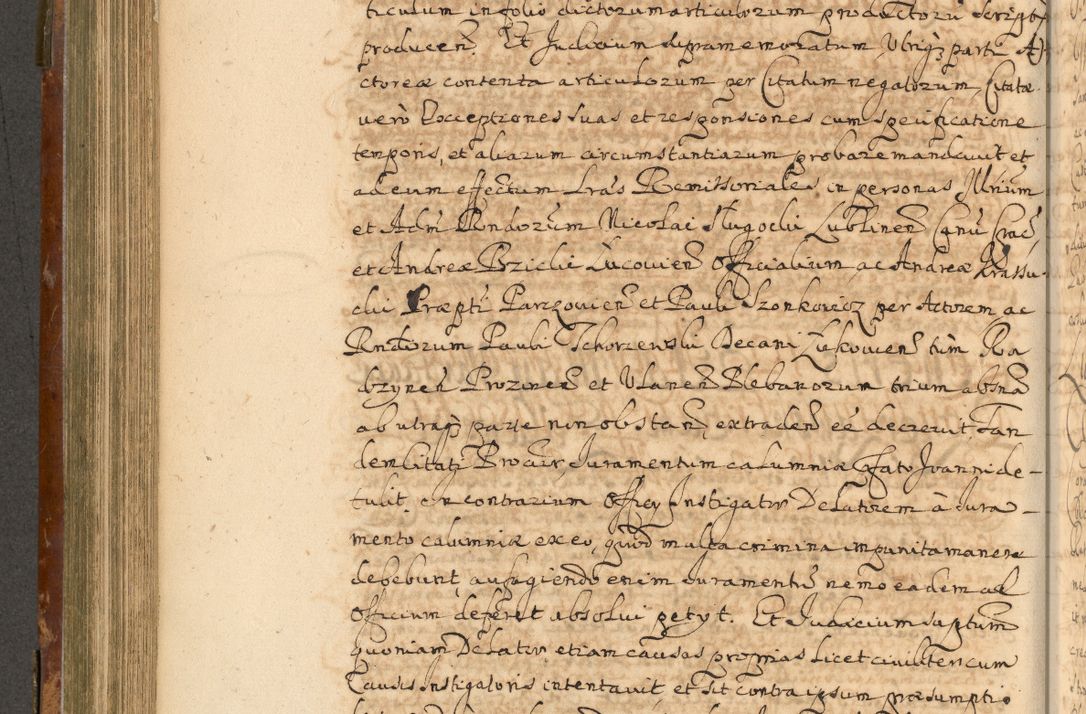 ticulum in folio dictorum articulorum productorũ script
producen̄. Et Judicium supramemoratum, Utriq̃ parti A
ctoreæ contenta articulorum per Citatum negatorum, Citatæ
verò Exceptiones suas et responsiones cum specificatione
temporis, et aliarum circumstantiarum probare mandavit et
ad eum effectum Lrãs Remissoriales in personas Illrium
et Adm̃ Rndorum Nicolai Długocki Lublinen̄ Canũ Crac̃,
et Andreæ Brzicki Lucovien̄ Officialium ac Andreæ Krassu-
cki Præpti Parczovien̄ et Pauli Szonkovicz per Actorem ac
Rndorum Pauli Tchorzewski Decani Łukovien̄ tum Ra
dzynen̄ Prozinen̄ et Ulanen̄ Plebanorum trium absna
ab utraq̃ parte non obstan̄, extraden̄ eẽ decrevit, Tan
dem litati Procur Juramentum calumniæ Cfato Joanni de-
tulit, in contrarium Officy Instigator Delatorem à Jura-
mento calumniæ ex eo, quod multa crimina impunita manere
debebunt, aufugiendo enim Juramentũ nemo eadem ad
Officium deferet absolui petyt. Et Judicium saptum
quoniam Delator, etiam causas proprias licet civiliter cum
Causis Instigatoris intentavit et sit contra ipsum præsumptio